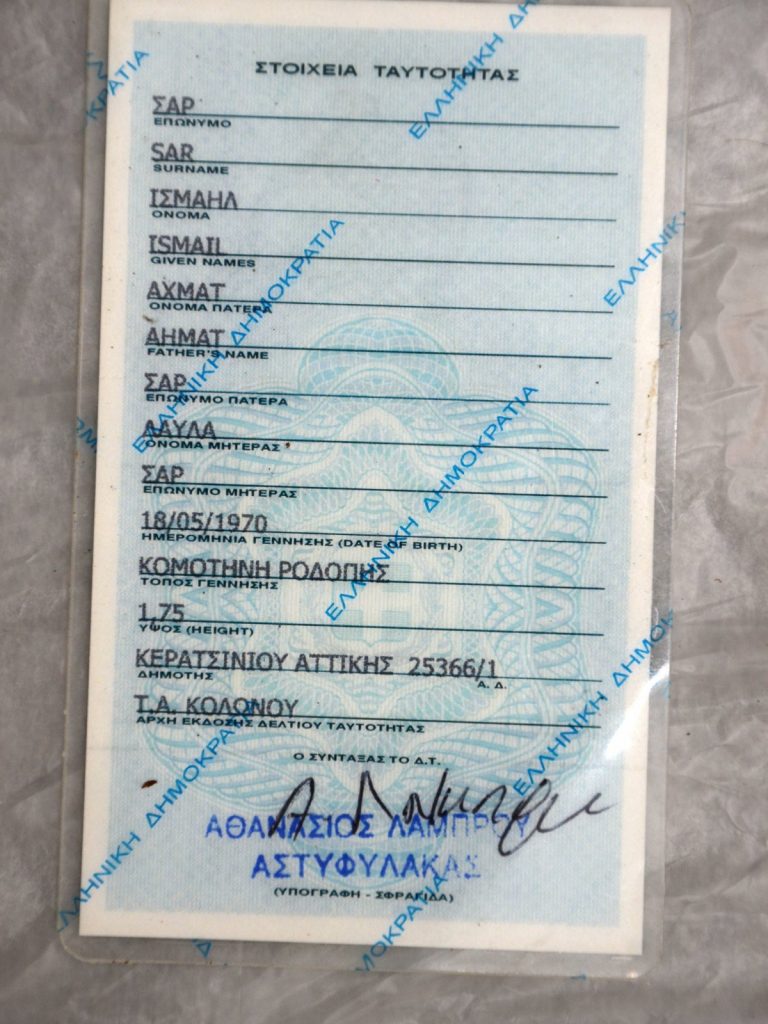 ΣΤΟΙΧΕΙΑ ΤΑΥΤΟΤΗΤΑΣ
ΣΑΡ
ΕΠΩΝΥΜΟ
SAR
SURNAME
ΙΣΜΑΗΛ
ΟΝΟΜΑ
ISMAIL
GIVEN NAMES
ΑΧΜΑΤ
ΟΝΟΜΑ ΠΑΤΕΡΑ
AHMAT
FATHER'S NAME
ΣΑΡ
ΕΠΩΝΥΜΟ ΠΑΤΕΡΑ
ΛΑΥΛΑ
ΟΝΟΜΑ ΜΗΤΕΡΑΣ
ΣΑΡ
ΕΠΩΝΥΜΟ ΜΗΤΕΡΑΣ
18/05/1970
ΗΜΕΡΟΜΗΝΙΑ ΓΕΝΝΗΣΗΣ (DATE OF BIRTH)
ΚΟΜΟΤΗΝΗ ΡΟΔΟΠΗΣ
ΤΟΠΟΣ ΓΕΝΝΗΣΗΣ
1,75
ΥΨΟΣ (HEIGHT)
ΚΕΡΑΤΣΙΝΙΟΥ ΑΤΤΙΚΗΣ 25366/1
ΔΗΜΟΤΗΣ Α. Δ.
Τ.Α. ΚΟΛΩΝΟΥ
ΑΡΧΗ ΕΚΔΟΣΗΣ ΔΕΛΤΙΟΥ ΤΑΥΤΟΤΗΤΑΣ
Ο ΣΥΝΤΑΞΑΣ ΤΟ Δ.Τ.
ΑΘΑΝΑΣΙΟΣ ΛΑΜΠΡΟΥ
ΑΣΤΥΦΥΛΑΚΑΣ
(ΥΠΟΓΡΑΦΗ - ΣΦΡΑΓΙΔΑ)
ΕΛΛΗΝΙΚΗ ΔΗΜΟΚΡΑΤΙΑ
ΕΛΛΗΝΙΚΗ ΔΗΜΟΚΡΑΤΙΑ
ΕΛΛΗΝΙΚΗ ΔΗΜΟΚΡΑΤΙΑ